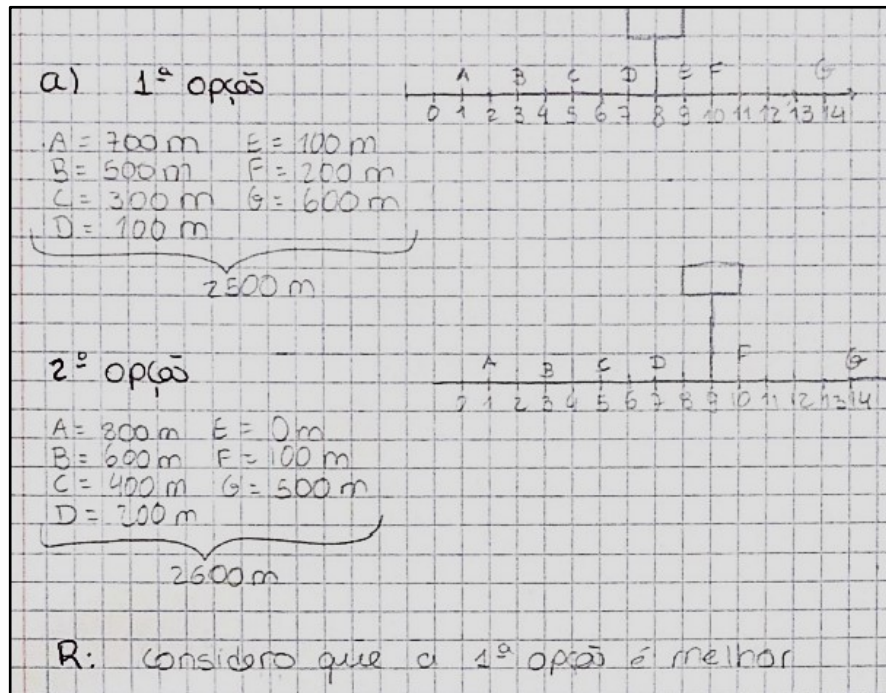 a) 1ª opção
A B C D E F G
0 1 2 3 4 5 6 7 8 9 10 11 12 13 14
A = 700 m E = 100 m
B = 500 m F = 200 m
C = 300 m G = 600 m
D = 100 m
2500 m
2ª opção
A B C D F G
0 1 2 3 4 5 6 7 8 9 10 11 12 13 14
A = 800 m E = 0 m
B = 600 m F = 100 m
C = 400 m G = 500 m
D = 200 m
2600 m
R: considero que a 1ª opção é melhor